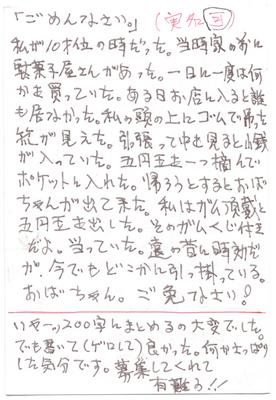 「ごめんなさい。」（実名可）
私が10才位の時だった。当時家の前に
駄菓子屋さんがあった。一日に一度は何
かを買っていた。ある日お店に入ると誰
も居なかった。私の頭の上にゴムで吊った
籠が見えた。引張って中を見ると小銭
が入っていた。五円玉を一つ摘んで
ポケットに入れた。帰ろうとするとおば
ちゃんが出て来た。私はガム頂戴と
五円玉を出した。そのガムくじ付き
だよ。当っていた。遠の昔に時効だ
が、今でもどこかに引っ掛っている。
おばーちゃん。ご免なさい！
いやーっ200字にまとめるの大変でした。
でも書いて（ゲロして）良かった。何かさっぱり
した気分です。募集してくれて
有難う!!